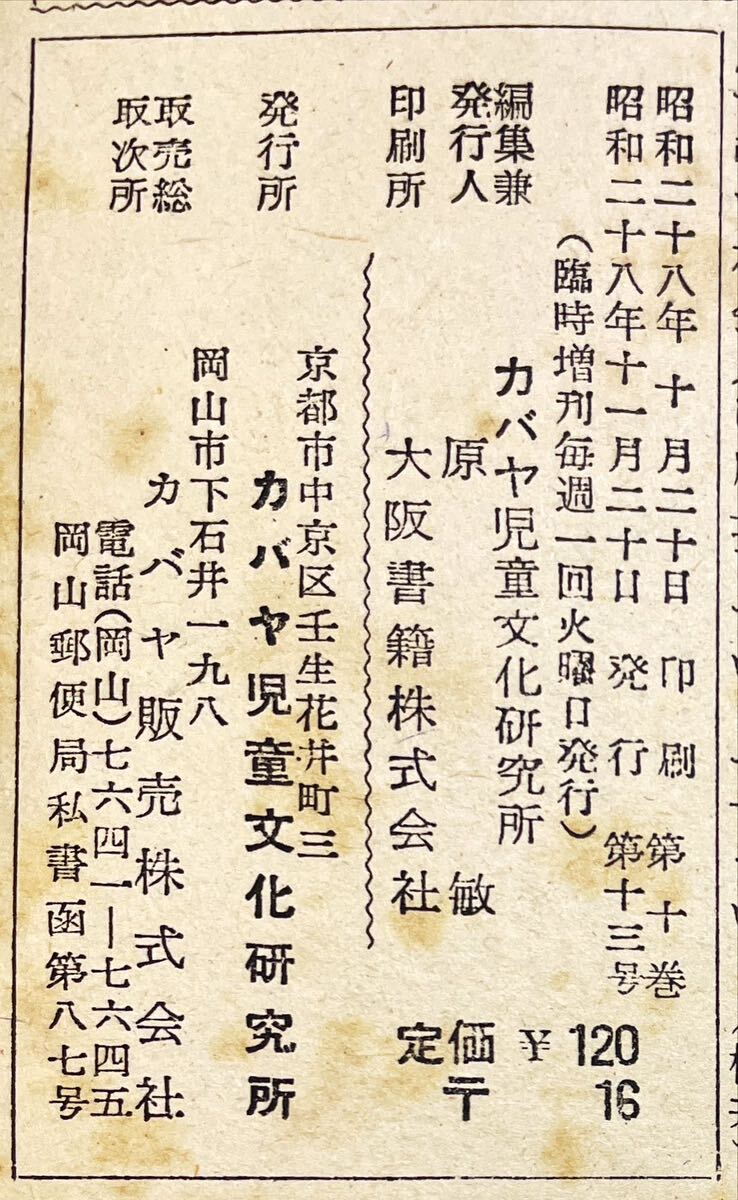 昭和二十八年十月二十日 印刷 第十巻
昭和二十八年十一月二十日 発行 第十三号
(臨時増刊毎週一回火曜日発行)
編集兼
発行人
カバヤ児童文化研究所
原 敏
印刷所 大阪書籍株式会社
定価 ¥120
〒 16
京都市中京区壬生花井町三
発行所 カバヤ児童文化研究所
岡山市下石井一九八
取売総
取次所
カバヤ販売株式会社
電話(岡山)七六四一―七六四五
岡山郵便局私書函第八七号